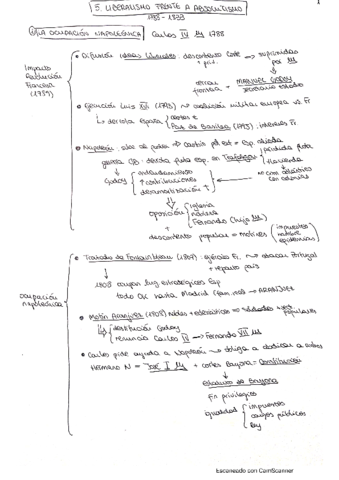 5. LIBERALISMO FRENTE A ABSOLUTISMO
1788 - 1833
1) LA OCUPACIÓN NAPOLEÓNICA Carlos IV 1788
Impacto
Revolución
Francesa
(1789)
• Difusión ideas liberales: descontento Corte → suprimidas
por
cerrar
frontera
MANUEL GODOY
secretario estado
• Ejecución Luis XVI (1793) → coalición militar europea vs Fr
↳ derrota España
Paz de Basilea (1795): intereses Fr
• Napoleón: sube al poder → cambio pol ext → Esp aliada
guerra GB: derrota flota esp. en Trafalgar
pérdida flota
Hacienda
Godoy
endeudamiento
↑ contribuciones
desamortización
oposición
Iglesia
nobleza
Fernando (hijo)
+
descontento popular → motines
impuestos
hambre
epidemias
Ocupación
napoleónica
• Tratado de Fontainebleau (1807): ejército Fr. → atacar Portugal
+ reparto país
1808 ocupan lug estratégicos Esp
todo OK hasta Madrid → ARANJUEZ
• Motín Aranjuez (1808) Nobles + eclesiásticos
populares
destitución Godoy
renuncia Carlos IV → Fernando VII
• Carlos pide ayuda a Napoleón → obliga a abdicar a ambos
Hermano N = José I + cortes Bayona = Constitución
Estatuto de Bayona
Fin privilegios
igualdad
impuestos
cargos públicos
ley
Escaneado con CamScanner